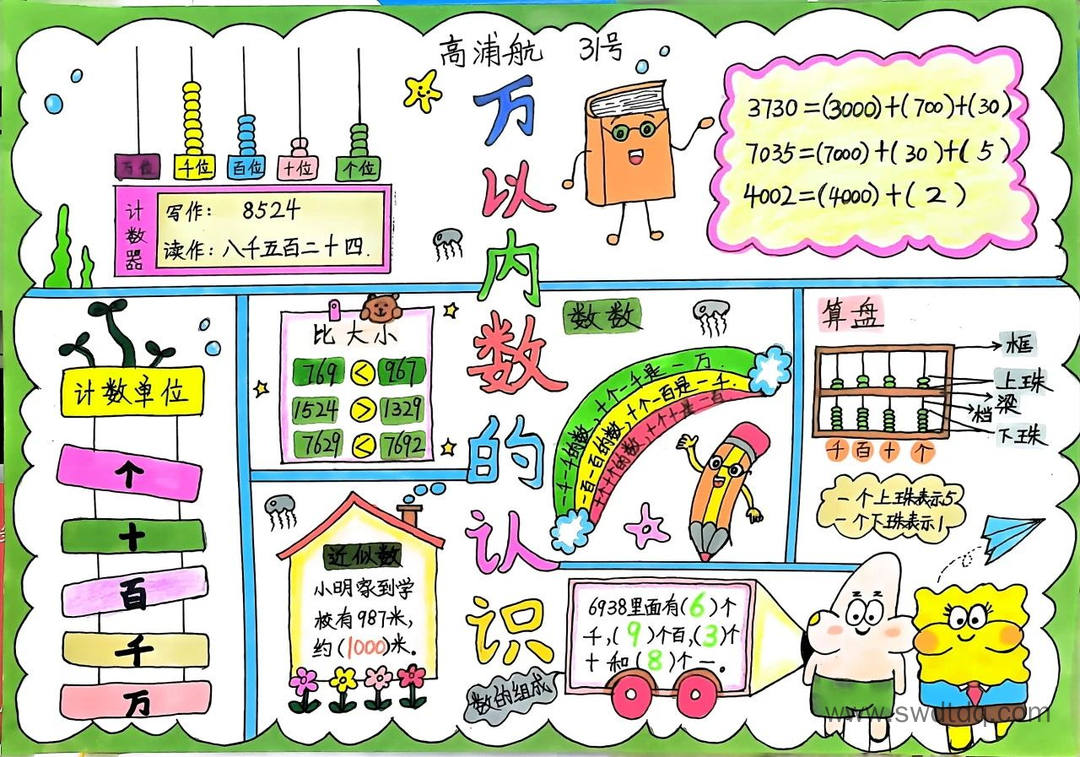 高浦航 31号
万以内数的认识
万位 千位 百位 十位 个位
计数器
写作: 8524
读作:八千五百二十四.
3730=(3000)+(700)+(30)
7035=(7000)+(30)+(5)
4002=(4000)+(2)
计数单位
个
十
百
千
万
比大小
769 < 967
1524 > 1329
7629 < 7692
数数
一千一千的数,十个一千是一万
一百一百的数,十个一百是一千.
十个十个的数,十个十是一百
算盘
框
上珠
梁
档
下珠
千 百 十 个
一个上珠表示5
一个下珠表示1
近似数
小明家到学
校有987米,
约(1000)米。
数的组成
6938里面有(6)个
千,(9)个百,(3)个
十和(8)个一。
www.swdtdq.com